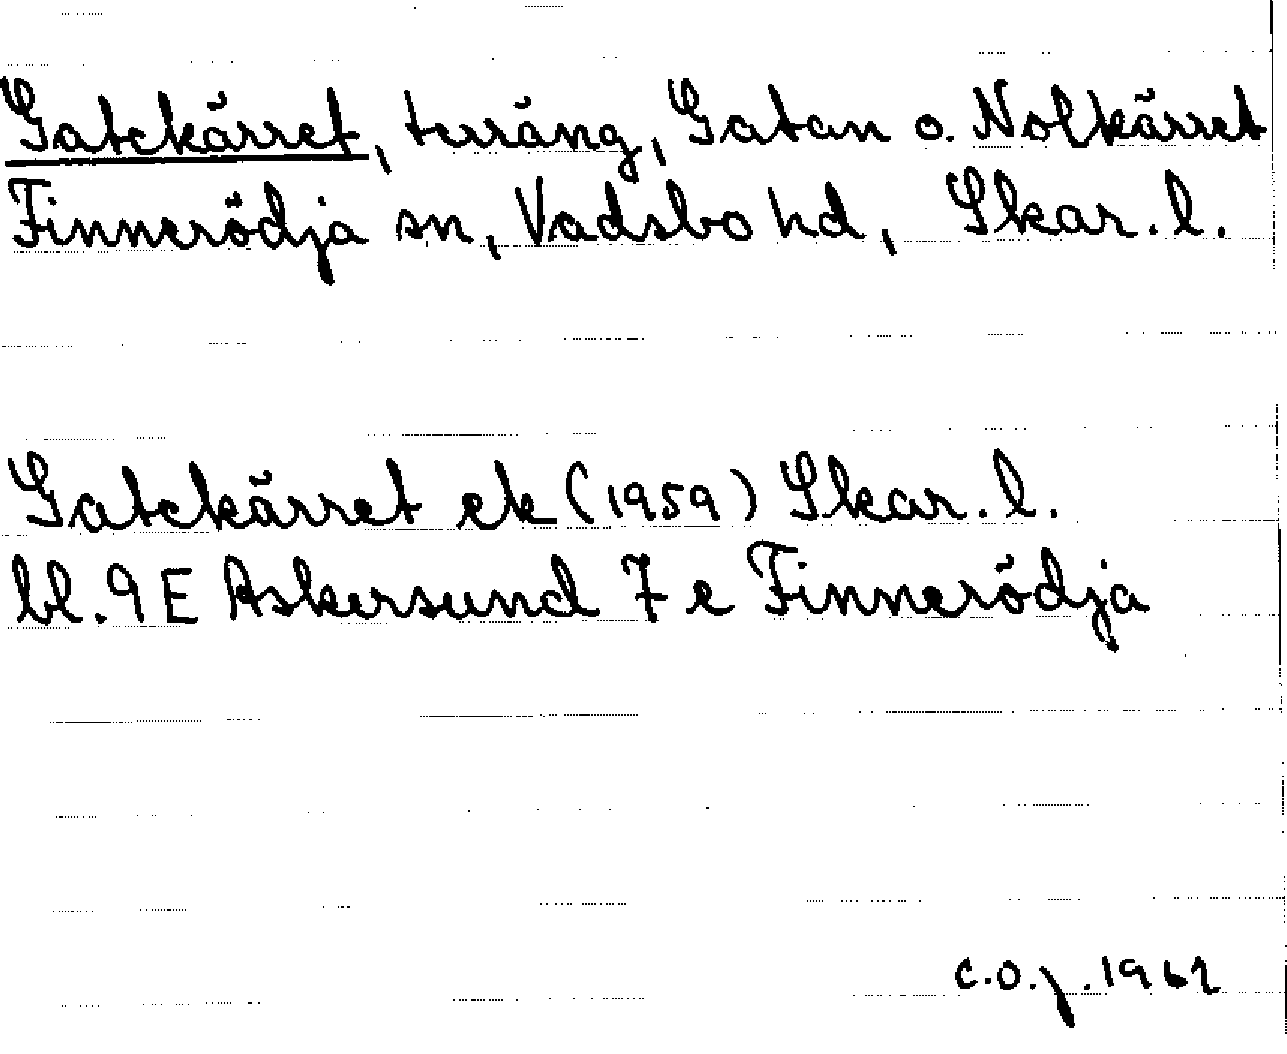 Gatekärret, terräng, Gatan o. Nolkärret
Finnerödja sn, Vadsbo hd, Skar. l.
Gatekärret ek (1959) Skar. l.
bl. 9 E Askersund 7 e Finnerödja
C.O.J. 1962